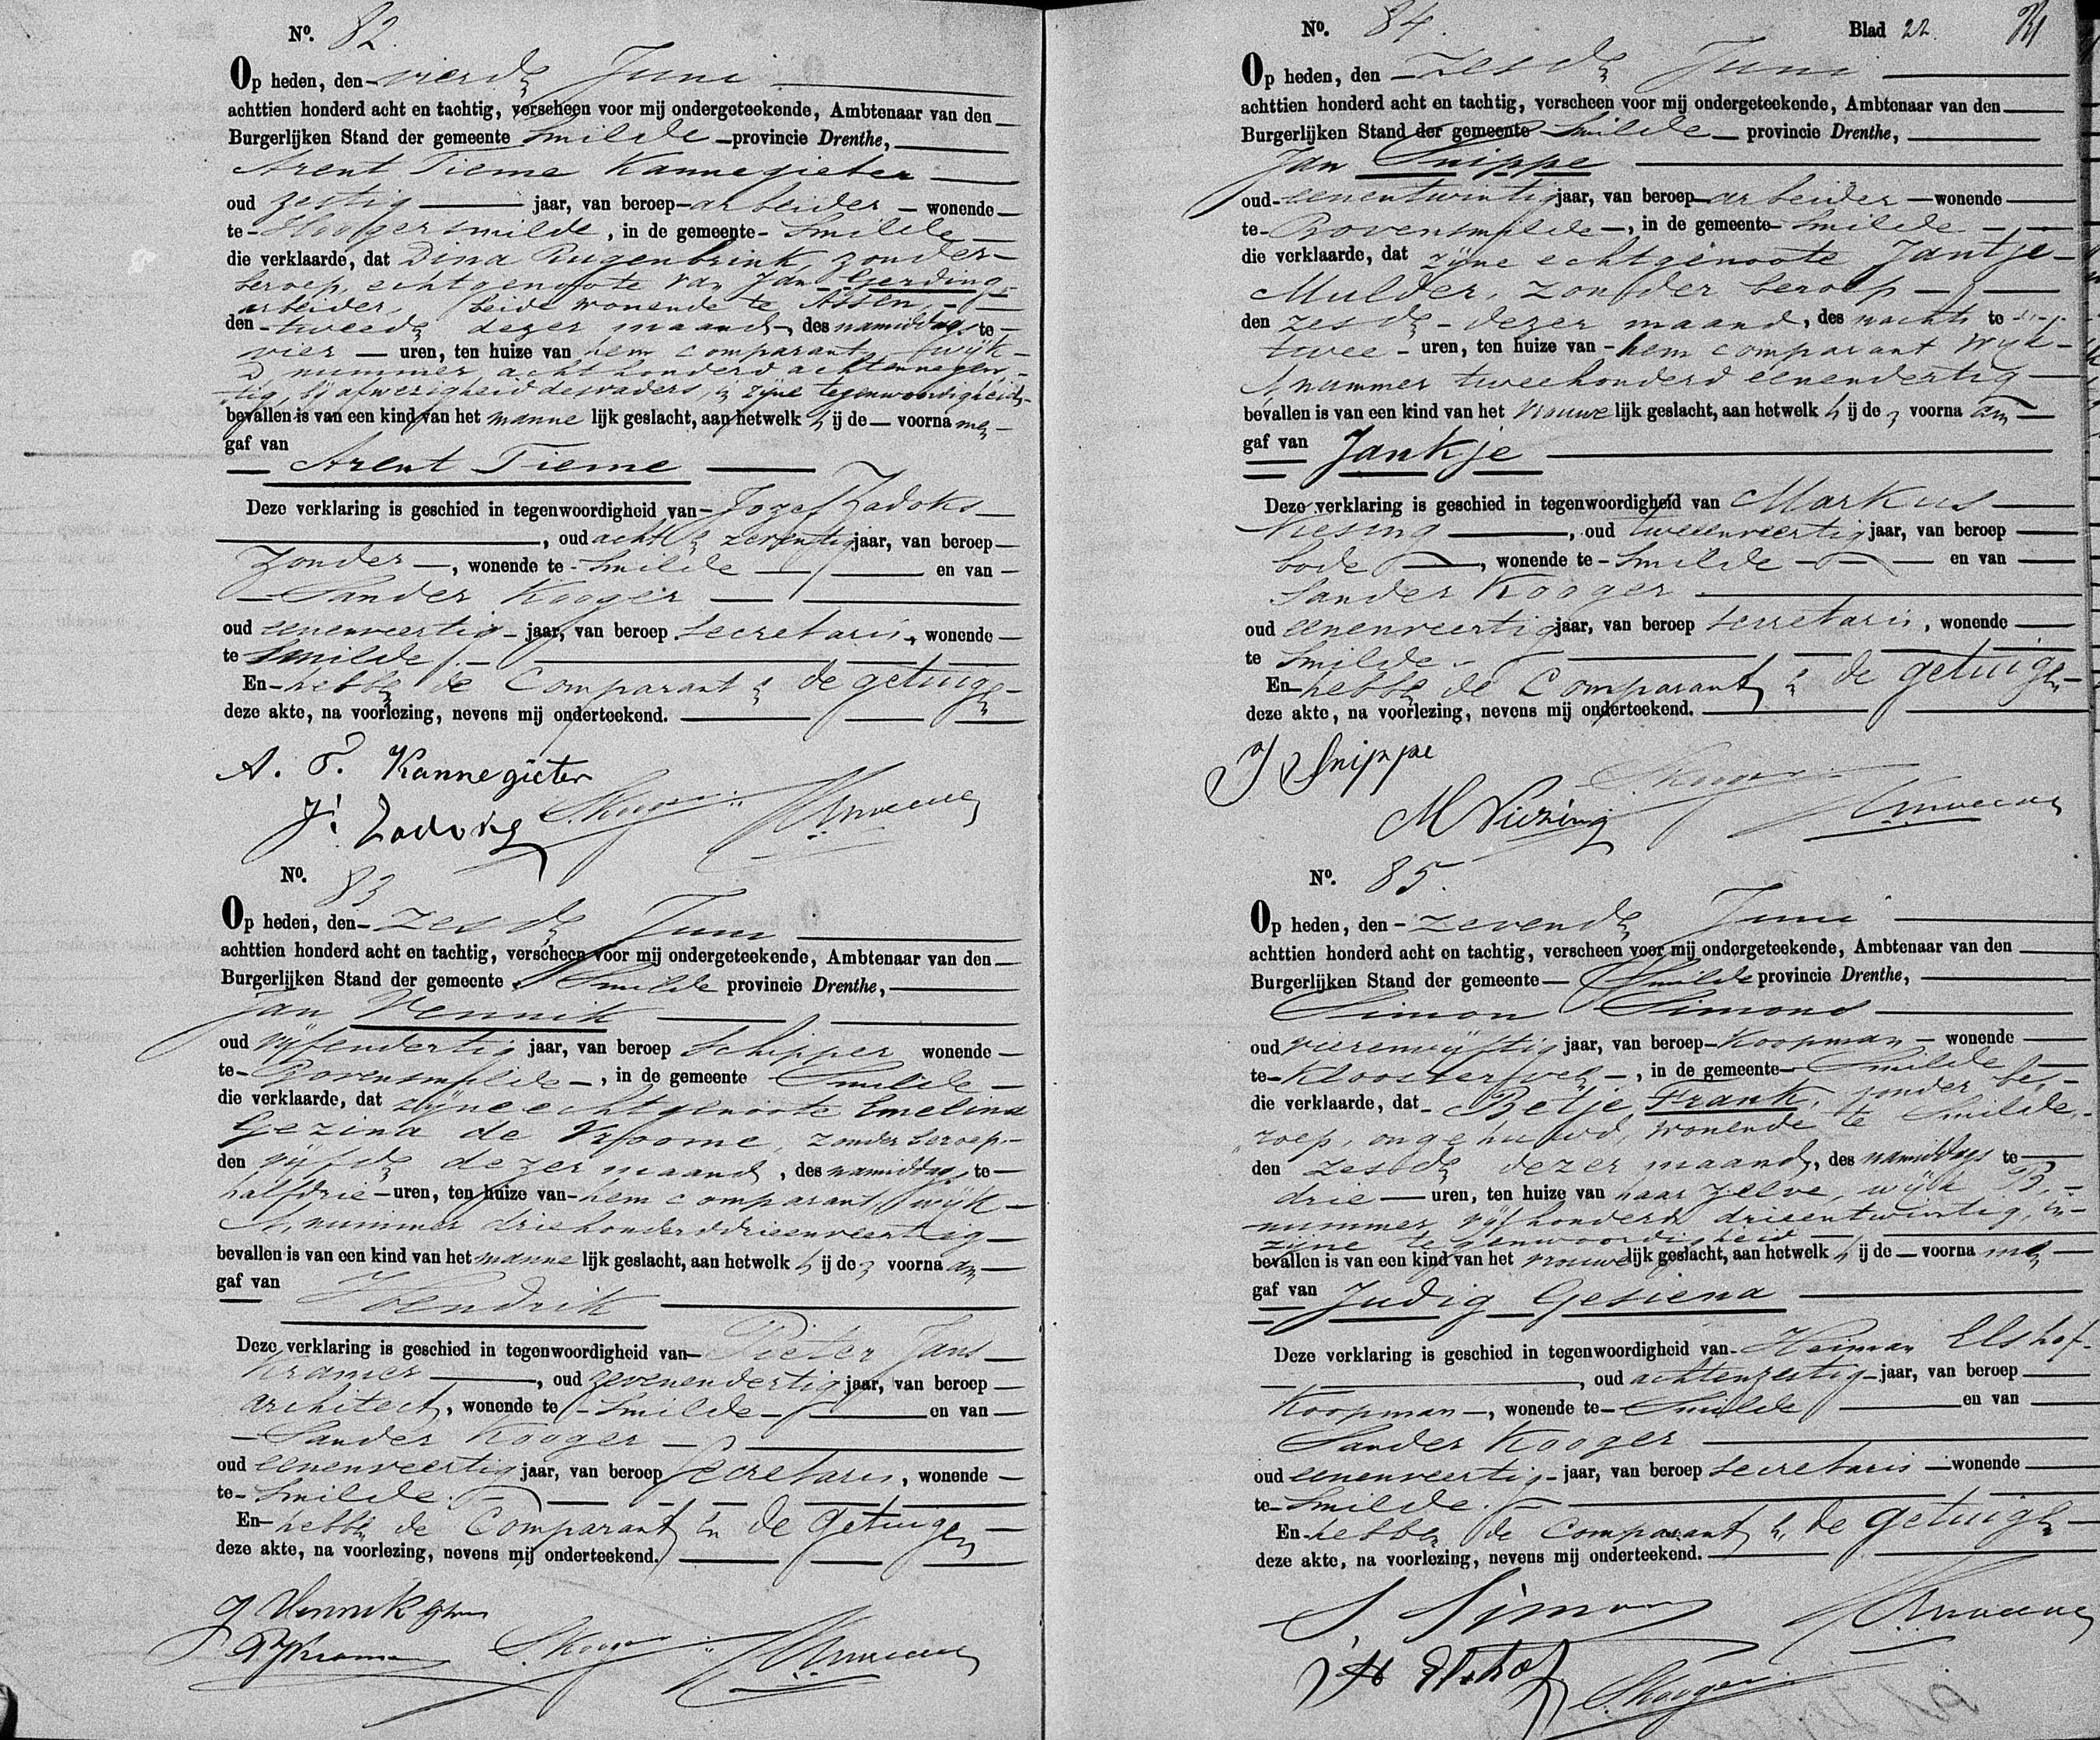 No. 82.
Op heden, den vierden Juni
achttien honderd acht en tachtig, verscheen voor mij ondergeteekende, Ambtenaar van den
Burgerlijken Stand der gemeente Smilde provincie Drenthe,
Arent Tieme Kannegieter
oud zestig jaar, van beroep arbeider wonende
te Hoogersmilde, in de gemeente Smilde
die verklaarde, dat Dina Rugenbrink, zonder
beroep, echtgenoote van Jan Gerding,
arbeider, beide wonende te Assen,
den tweeden dezer maand, des namiddags te
vier uren, ten huize van hem comparant, wijk
D nummer acht honderd achtennegen-
tig, bij afwezigheid des vaders, in zijne tegenwoordigheid,
bevallen is van een kind van het mannelijk geslacht, aan hetwelk hij de voornamen
gaf van
Arent Tieme
Deze verklaring is geschied in tegenwoordigheid van Jozef Zadoks
, oud acht en zeventig jaar, van beroep
zonder, wonende te Smilde en van
Sander Kooger
oud eenenveertig jaar, van beroep secretaris, wonende
te Smilde.
En hebben de Comparant en de getuigen
deze akte, na voorlezing, nevens mij onderteekend.
A. T. Kannegieter
J. Zadoks S. Kooger
No. 83
Op heden, den zesden Juni
achttien honderd acht en tachtig, verscheen voor mij ondergeteekende, Ambtenaar van den
Burgerlijken Stand der gemeente Smilde provincie Drenthe,
Jan Vennik
oud vijfendertig jaar, van beroep schipper wonende
te Bovensmilde, in de gemeente Smilde
die verklaarde, dat zijne echtgenoote Emelina
Gezina de Vroome, zonder beroep,
den vijfden dezer maand, des namiddags te
halfdrie uren, ten huize van hem comparant wijk
A, nummer driehonderd drieenveertig
bevallen is van een kind van het mannelijk geslacht, aan hetwelk hij den voornaam
gaf van
Hendrik
Deze verklaring is geschied in tegenwoordigheid van Pieter Jans
Kramer, oud zevenendertig jaar, van beroep
architect, wonende te Smilde en van
Sander Kooger
oud eenenveertig jaar, van beroep secretaris, wonende
te Smilde.
En hebben de Comparant en de Getuigen
deze akte, na voorlezing, nevens mij onderteekend.
J Vennik
PJ Kramer S. Kooger
No. 84.
Blad 22.
Op heden, den zesden Juni
achttien honderd acht en tachtig, verscheen voor mij ondergeteekende, Ambtenaar van den
Burgerlijken Stand der gemeente Smilde provincie Drenthe,
Jan Snippe
oud eenentwintig jaar, van beroep arbeider wonende
te Bovensmilde, in de gemeente Smilde
die verklaarde, dat zijne echtgenoote Jantje
Mulder, zonder beroep
den zesden dezer maand, des nachts te
twee uren, ten huize van hem comparant wijk
A, nummer tweehonderd eenendertig
bevallen is van een kind van het vrouwelijk geslacht, aan hetwelk hij den voornaam
gaf van
Jankje
Deze verklaring is geschied in tegenwoordigheid van Markus
Niesing, oud tweeenveertig jaar, van beroep
bode, wonende te Smilde en van
Sander Kooger
oud eenenveertig jaar, van beroep secretaris, wonende
te Smilde.
En hebben de Comparant en de getuigen
deze akte, na voorlezing, nevens mij onderteekend.
J Snippe
S. Kooger
M Niesing
No. 85.
Op heden, den zevenden Juni
achttien honderd acht en tachtig, verscheen voor mij ondergeteekende, Ambtenaar van den
Burgerlijken Stand der gemeente Smilde provincie Drenthe,
Simon Simons
oud vierenvijftig jaar, van beroep Koopman wonende
te Kloosterveen, in de gemeente Smilde
die verklaarde, dat Betje Frank, zonder be-
roep, ongehuwd, wonende te Smilde,
den zesden dezer maand, des namiddags te
drie uren, ten huize van haar zelve, wijk B,
nummer vijfhonderd drieentwintig, in
zijne tegenwoordigheid
bevallen is van een kind van het vrouwelijk geslacht, aan hetwelk hij de voornamen
gaf van
Judig Gesiena
Deze verklaring is geschied in tegenwoordigheid van Heiman Elshof
, oud achtenzestig jaar, van beroep
Koopman, wonende te Smilde en van
Sander Kooger
oud eenenveertig jaar, van beroep secretaris wonende
te Smilde.
En hebben de Comparant en de getuigen
deze akte, na voorlezing, nevens mij onderteekend.
S. Simons
H Elshof S. Kooger